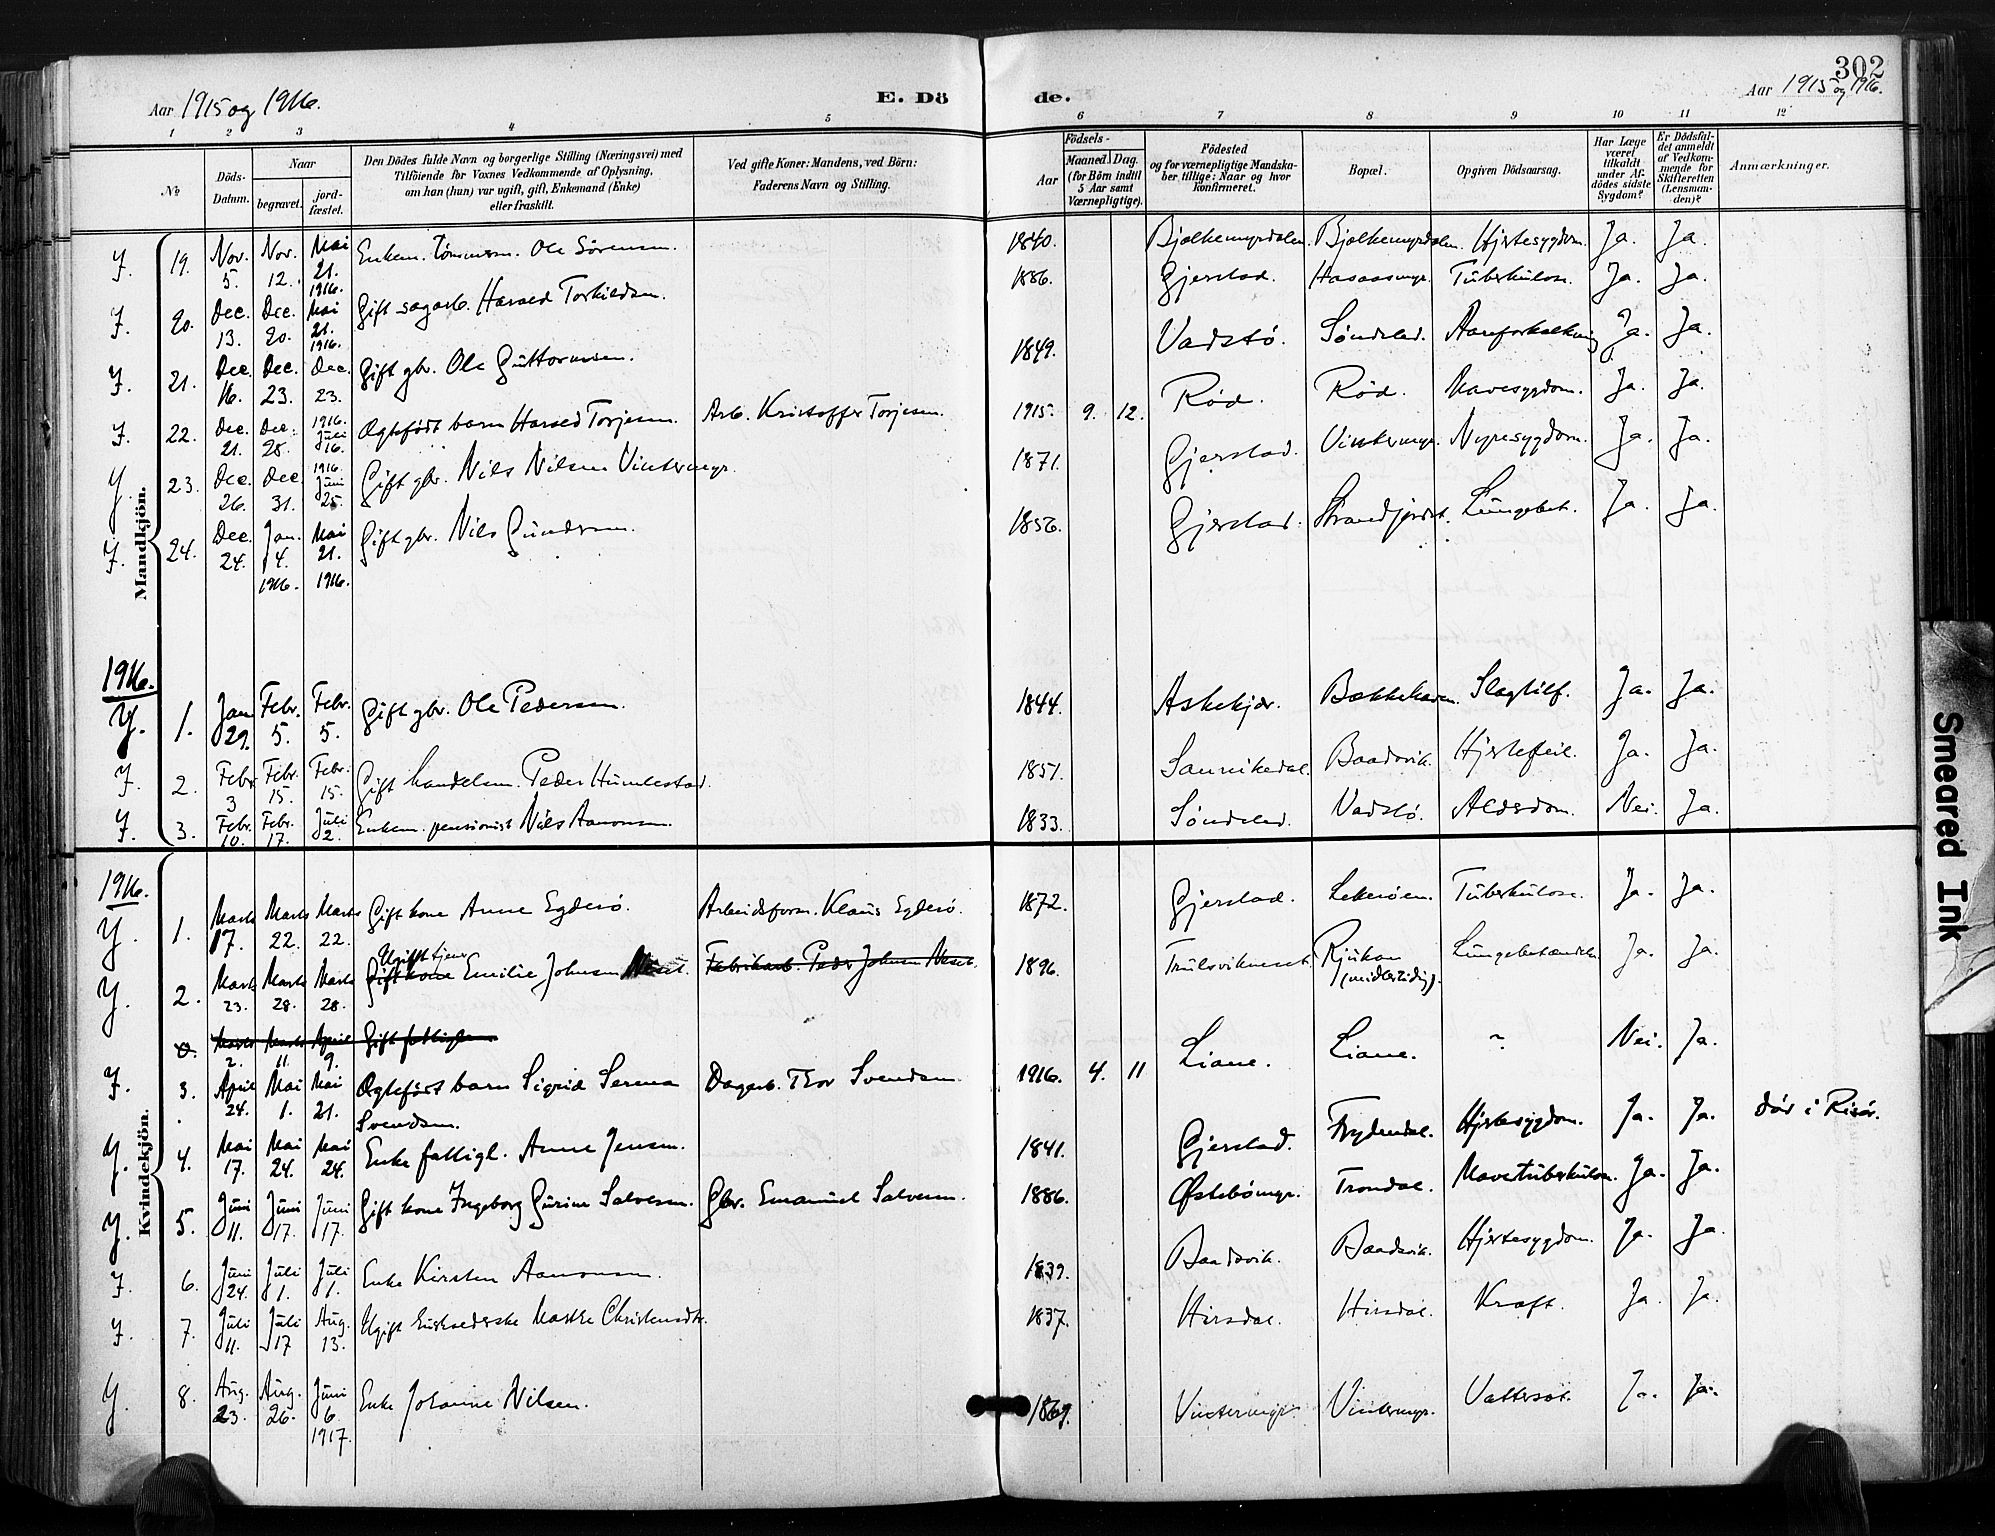 302
Aar 1915 og 1916.
E. Dö
de.
Aar 1915 og 1916.
1 2 3 4 5 6 7 8 9 10 11 12
No
Döds-Datum.
Naar
begravet.
jord-fæstet.
Den Dödes fulde Navn og borgerlige Stilling (Næringsvei) med
Tilföiende for Voxnes Vedkommende af Oplysning,
om han (hun) var ugift, gift, Enkemand (Enke)
eller fraskilt.
Ved gifte Koner: Mandens, ved Börn:
Faderens Navn og Stilling.
Födsels-
Aar
Maaned. Dag.
(for Börn indtil
5 Aar samt
Værnepligtige).
Födested
og for værnepligtige Mandska-
ber tillige: Naar og hvor
konfirmeret.
Bopæl.
Opgiven Dödsaarsag.
Har Læge
været
tilkaldt
under Af-
dödes sidste
Sygdom?
Er Dödsfal-
det anmeldt
af Vedkom-
mende for
Skifteretten
(Lensman-
den)?
Anmærkninger.
Mandkjön.
19. Nov. 5. Nov. 12. Mai 21. 1916. Enkem. tömmerm. Ole Sørensen. 1840. Bjelkemyrdalen. Bjelkemyrdalen. Hjertesygdom. Ja. Ja.
20. Dec. 13. Dec. 20. Mai 21. 1916. Gift sagarb. Harald Torkildsen. 1886. Gjerstad. Haraasmyr. Tuberkulose. Ja. Ja.
21. Dec. 16. Dec. 23. Dec. 23. Gift gbr. Ole Guttormsen. 1849. Vadstø. Søndeled. Aareforkalkning Ja. Ja.
22. Dec. 21. Dec. 28. 1916. Juli 16. Ægtefødt barn Harald Torjesen. Arb. Kristoffer Torjesen. 1915. 9. 12. Rød. Rød. Mavesygdom. Ja. Ja.
23. Dec. 26. Dec. 31. 1916. Juni 25. Gift gbr. Nils Nilsen Vintermyr. 1871. Gjerstad. Vintermyr. Nyresygdom. Ja. Ja.
24. Dec. 24. Jan. 4. 1916. Mai 21. 1916. Gift gbr. Nils Gundersen. 1856. Gjerstad. Strandjordet. Lungebet. Ja. Ja.
1916.
1. Jan 29. Febr. 5. Febr. 5. Gift gbr. Ole Pedersen. 1844. Askekjær. Bækkehaven. Slagtilf. Ja. Ja.
2. Febr 3 Febr. 15. Febr. 15. Gift handelsm. Peder Humlestad. 1851. Sannikedal. Baadsvik. Hjertefeil. Ja. Ja.
3. Febr. 10. Febr. 17. Juli 2. Enkem. pensionist Nils Aanonsen. 1833. Søndeled. Vadstø. Aldersdom. Nei. Ja.
Kvindekjön.
1916.
1. Marts 17. Marts 22. Marts 22. Gift kone Anne Egdesø. Arbeidsform. Klaus Egdesø. 1872. Gjerstad. Tuberkulose. Ja. Ja.
2. Marts 23. Marts 28. Marts 28. Ugift tjener Gift kone Emilie Johnsen Neset. Fabrikarb. Peder Johnsen Neset. 1896. Trulsvikneset. Rjukan (midlertidig). Lungebetændelse Ja. Ja.
Marts 2. Marts 11. April 9. Gift fattiglem
3. April 24. Mai 1. Mai 21. Ægtefødt barn Sigrid Serena Svendsen. Dagarb. Thor Svendsen. 1916. 4. 11 Liane. Liane. ~. Nei. Ja.
4. Mai 17. Mai 24. Mai 24. Enke fattigl. Anne Jensen. 1841. Gjerstad. Frydendal. Hjertesygdom. Ja. Ja. dør i Risør.
5. Juni 11. Juni 17. Juni 17. Gift kone Ingeborg Gurine Salvesen. Gbr. Emanuel Salvesen. 1886. Østebømyr. Trondal. Mavetuberkulose. Ja. Ja.
6. Juni 24. Juli 1. Juli 1. Enke Kirsten Aanonsen. 1839. Baadsvik. Baadsvik. Hjertesygdom. Ja. Ja.
7. Juli 11. Juli 17 Aug. 13. Ugift Marthe Christensdtr. 1837. Hirsdal. Hirsdal. Kræft. Ja. Ja.
8. Aug. 23. Aug. 26. Juni 6. 1917. Enke Johanne Nilsen. 1869. Vintermyr. Vintermyr. Vattersot. Ja. Ja.
Smeared Ink